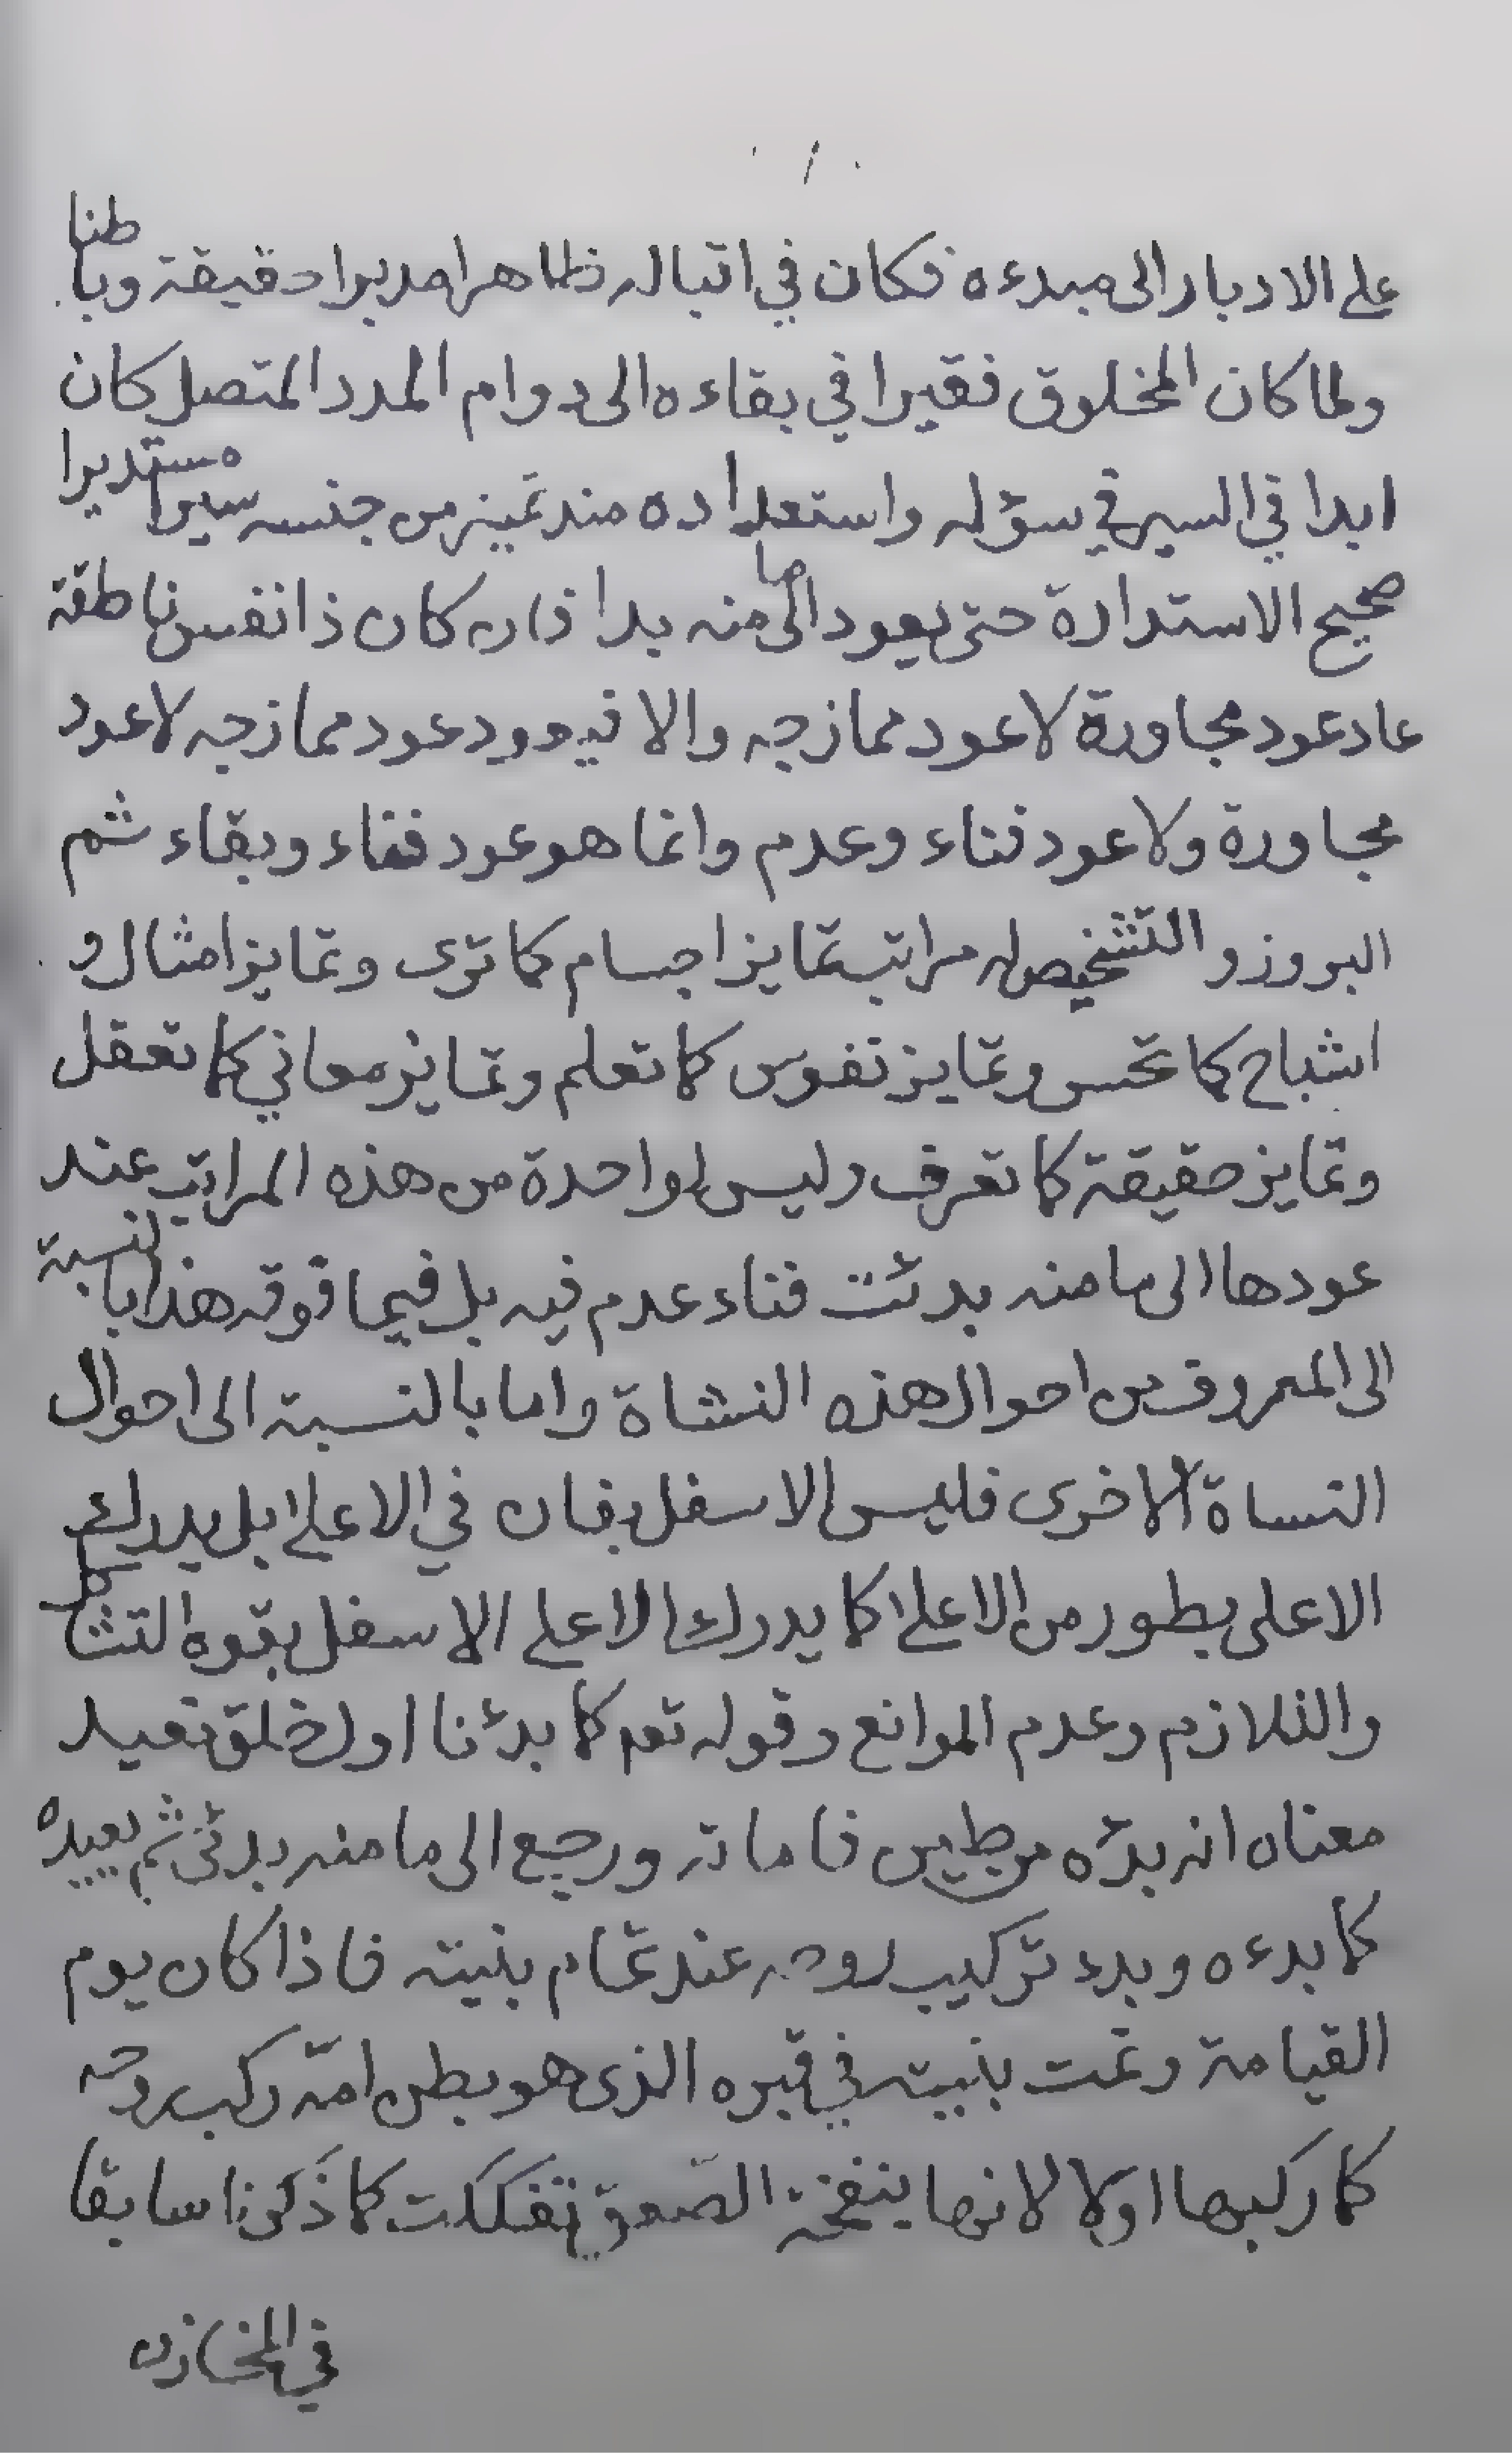 على الادبار الى مبدءه فكان في اقباله ظاهرا مدبرا حقيقة وباطنا
ولما كان المخلوق فقيرا في بقاءه الى دوام المدد المتصل كان
ابدا في السير في سؤله واستعداده منذ تميز من جنسه سيرا مستديرا
صحيح الاستدارة حتى يعود الى ما منه بدا فان كان ذا نفس ناطقة
عاد عود مجاورة لا عود ممازجه والا فيعود عود ممازجه لا عود
مجاورة ولا عود فناء وعدم وانما هو عود فناء وبقاء ثم
البروز والتشخيص له مراتب تمايز اجسام كما ترى وتمايز امثال و
اشباح كما تحس وتمايز نفوس كما تعلم وتمايز معاني كما تعقل
وتمايز حقيقة كما تعرف وليس لواحدة من هذه المراتب عند
عودها الى ما منه بدئت فناء عدم فيه بل فيما فوقه هذا بالنسبة
الى المعروف من احوال هذه النشاة واما بالنسبة الى احوال
النساة الاخرى فليس الاسفل بفان في الاعلى بل يدرك
الاعلى بطور من الاعلى كما يدرك الاعلى الاسفل بقوة التشاكل
والتلازم وعدم الموانع وقوله تعم كما بدئنا اول خلق نعيد
معناه انه بدئه من طين فاماته ورجع الى ما منه بدئ ثم يعيده
كما بدءه وبدء تركيب روحه عند تمام بنيته فاذا كان يوم
القيامة وتمت بنيته في قبره الذى هو بطن امّه ركب روحه
كما ركبها اولا لانها ينفخة الصّعق تفككت كما ذكرنا سابقا
في المخازن